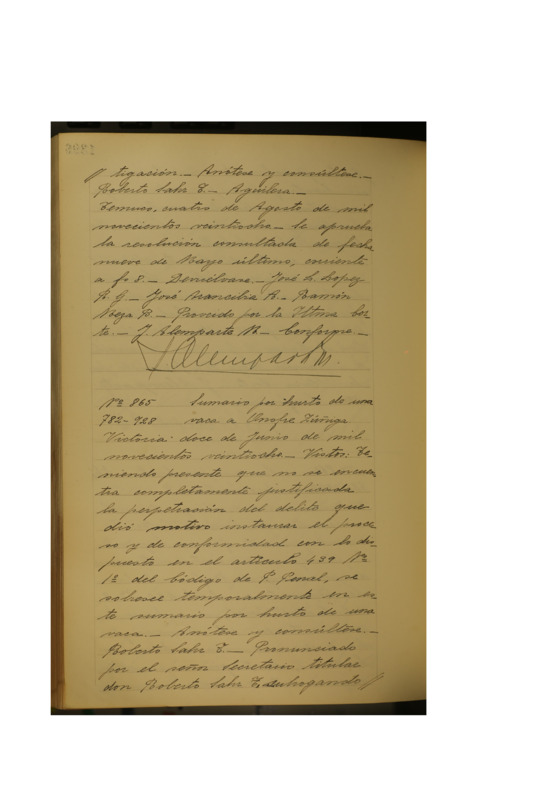 // tigación.- Anótese y consúltese.-
Roberto Sahr T.- Aguilera.-
Temuco, cuatro de Agosto de mil
novecientos veintiocho.- Se aprueba
la resolución consultada de fecha
nueve de Mayo último, corriente
a fs 8.- Devuélvase.- José L. Lopez
A. G.- José Arancibia A.- Ramón
Vega B.- Proveido por la Iltma Cor-
te.- J. Alemparte R.- Conforme.-
J Alemparte R.
Nº 865 Sumario por hurto de una
782-928 vaca a Onofre Zúñiga
Victoria: doce de Junio de mil
novecientos veintiocho.- Vistos: Te-
niendo presente que no se encuen-
tra completamente justificada
la perpetración del delito que
dió motivo instaurar el proce-
so y de conformidad con lo dis-
puesto en el artículo 439 Nº
1º del Código de P. Penal, se
sobresee temporalmente en es-
te sumario por hurto de una
vaca.- Anótese y consúltese.-
Roberto Sahr T.- Pronunciado
por el señor Secretario titular
don Roberto Sahr T, subrogando //